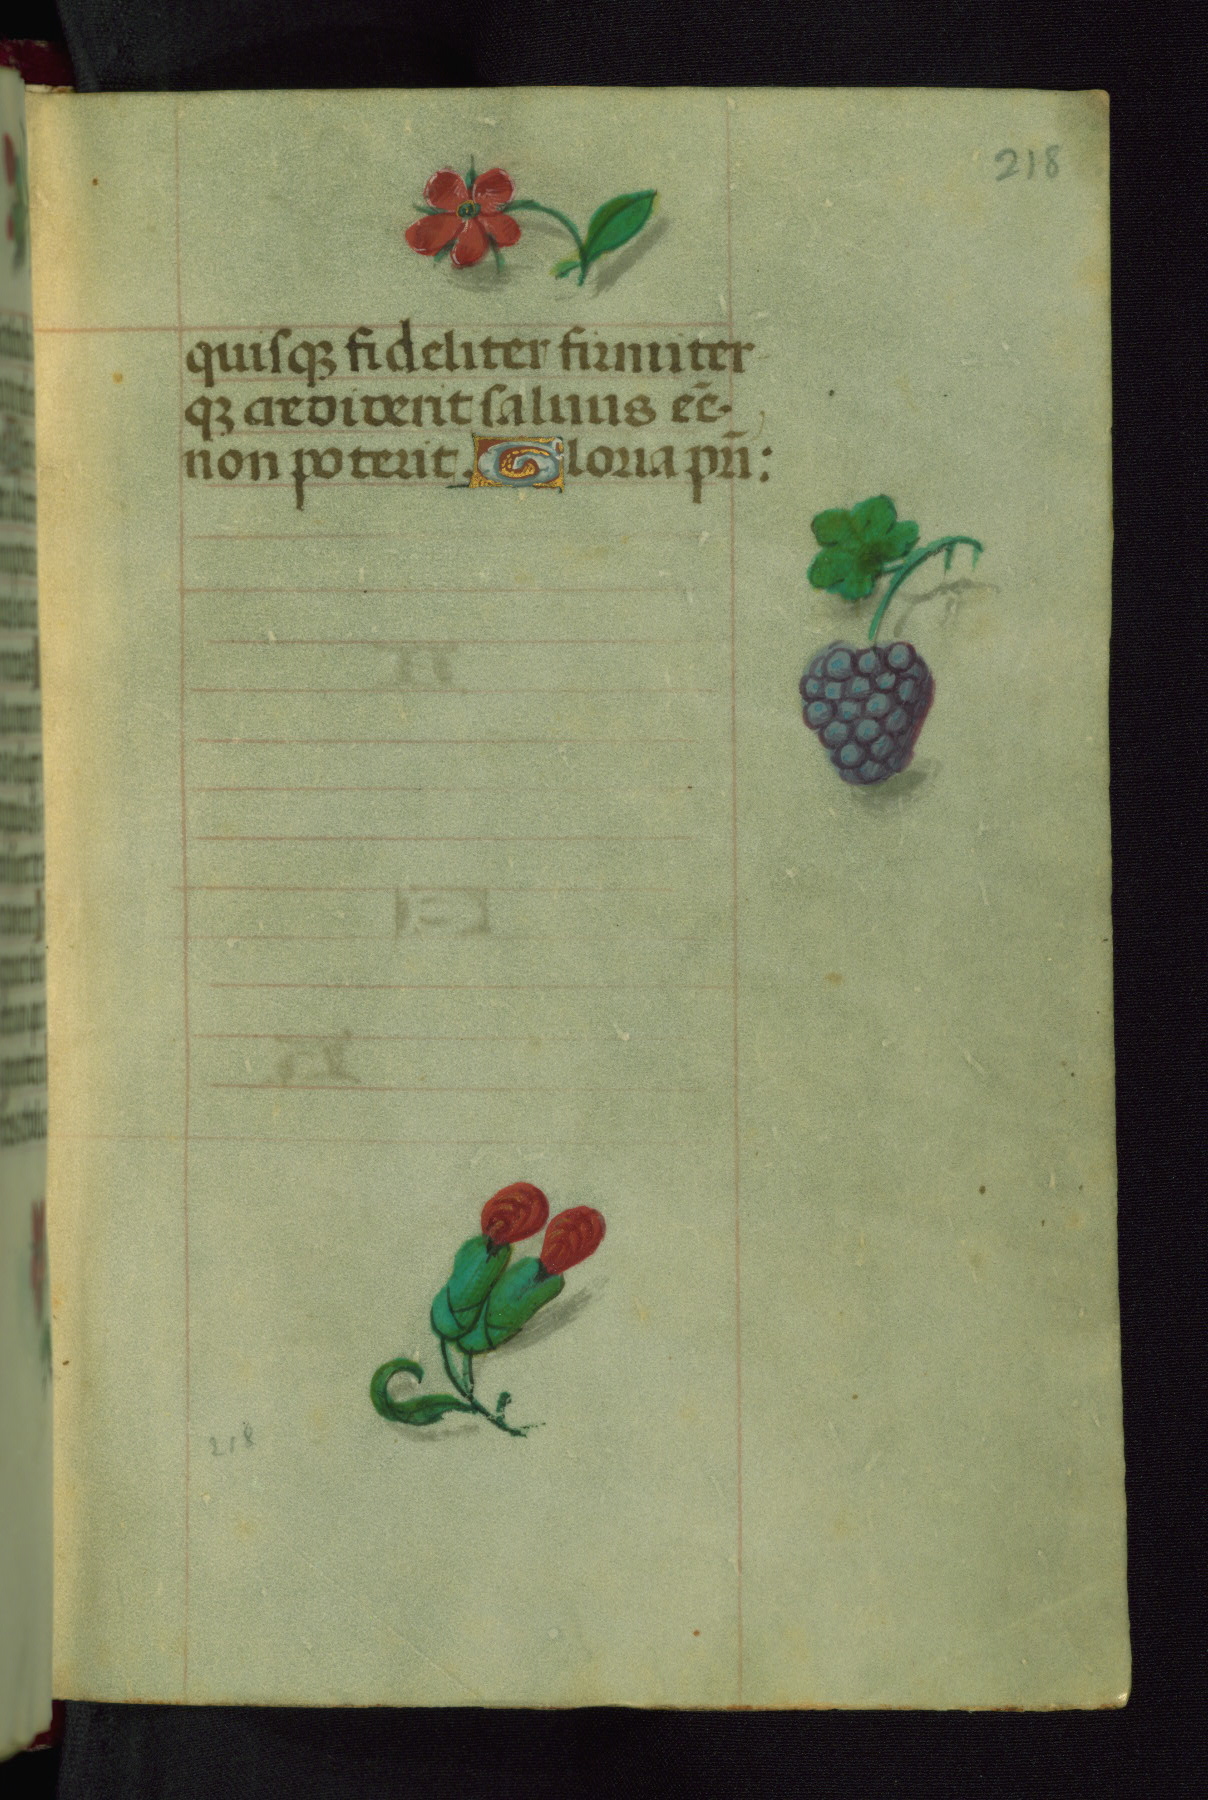 218
quisqꝫ fideliter firmiter
qꝫ crediderit saluus eē-
non poterit. Gloria pr̄i:
218